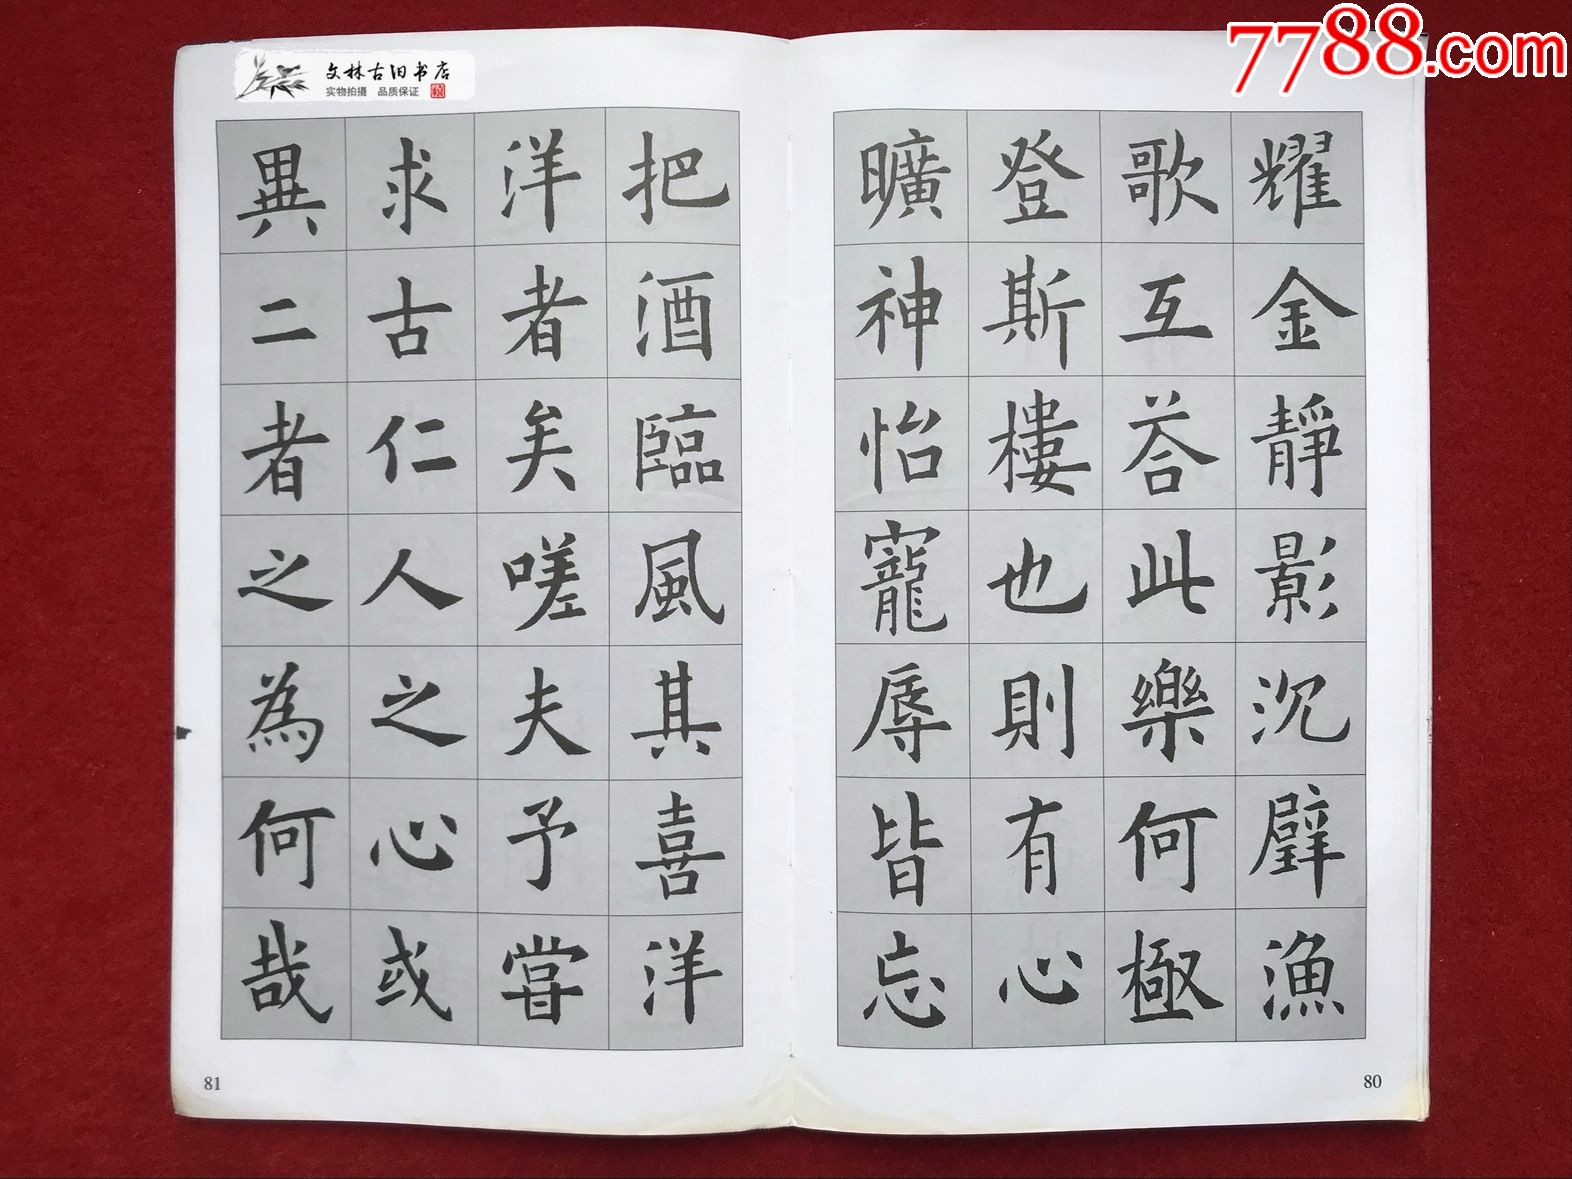 7788.com
文林古旧书店
实物拍摄 品质保证
耀金靜影沉璧漁
歌互荅此樂何極
登斯樓也則有心
曠神怡寵辱皆忘
80
把酒臨風其喜洋
洋者矣嗟夫予嘗
求古仁人之心或
異二者之為何哉
81